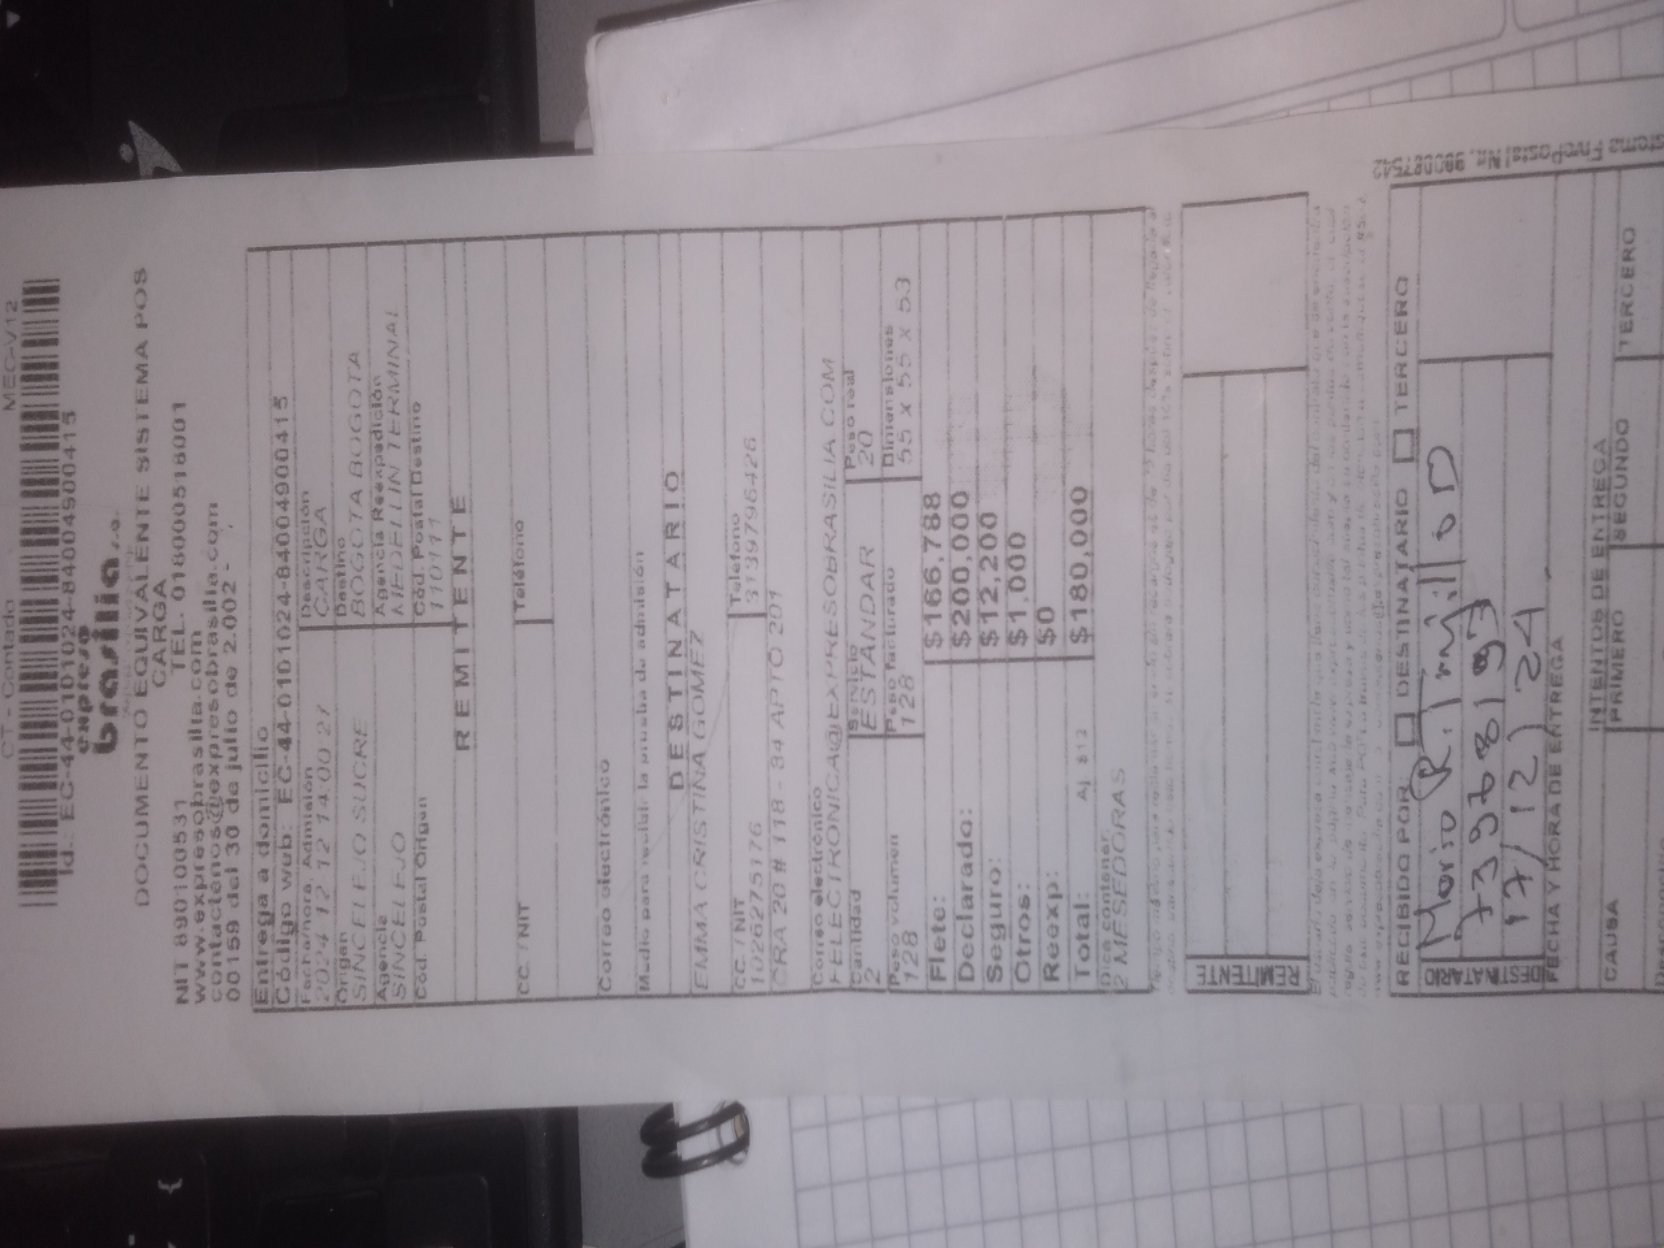 CT - Contado MEC-V12
Id.: EC-44-0101024-84004900415
expreso
brasilia s.a.
DOCUMENTO EQUIVALENTE SISTEMA POS
CARGA
NIT 890100531 TEL. 018000518001
www.expresobrasilia.com
contactenos@expresobrasilia.com
00159 del 30 de julio de 2.002 -
Entrega a domicilio
Código web: EC-44-0101024-84004900415
Fecha/hora. Admisión Descripción
2024 12 12 14:00:21 CARGA
Origen Destino
SINCELEJO SUCRE BOGOTA BOGOTA
Agencia Agencia Reexpedición
SINCELEJO MEDELLIN TERMINAL
Cód. Postal Origen Cód. Postal Destino
110111
REMITENTE
CC. / NIT Teléfono
Correo electrónico
Medio para recibir la prueba de admisión
DESTINATARIO
EMMA CRISTINA GOMEZ
CC. / NIT Teléfono
1026275176 3139796426
CRA 20 # 118 - 84 APTO 201
Correo electrónico
FELECTRONICA@EXPRESOBRASILIA.COM
Cantidad Servicio Peso real
2 ESTANDAR 20
Peso volumen Peso facturado Dimensiones
128 128 55 x 55 x 53
Flete: $166,788
Declarado: $200,000
Seguro: $12,200
Otros: $1,000
Reexp: $0
Total: Aj $12 $180,000
Dice contener
2 MESEDORAS
REMITENTE
RECIBIDO POR: DESTINATARIO TERCERO
DESTINATARIO
Mario R.
73968197
17/12/24
FECHA Y HORA DE ENTREGA
INTENTOS DE ENTREGA
CAUSA PRIMERO SEGUNDO TERCERO